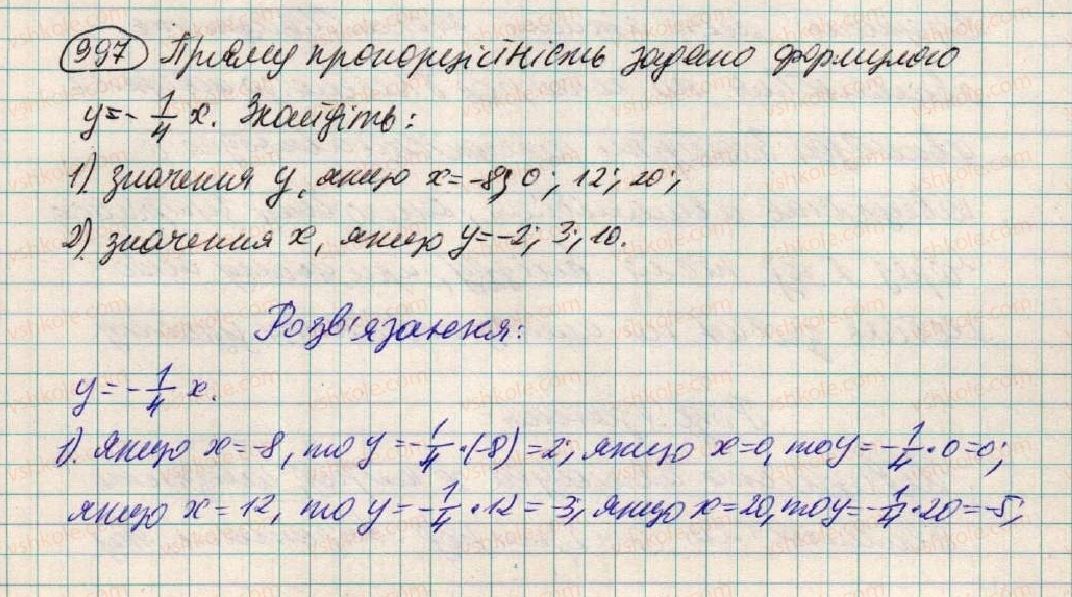 997 Пряму пропорційність задано формулою
y = - 1/4 x. Знайдіть:
1). значення y, якщо x = -8; 0; 12; 20;
2). значення x, якщо y = -2; 3; 10.
Розв'язання:
y = - 1/4 x.
1). Якщо x = -8, то y = - 1/4 · (-8) = 2; якщо x = 0, то y = - 1/4 · 0 = 0;
якщо x = 12, то y = - 1/4 · 12 = -3; якщо x = 20, то y = - 1/4 · 20 = -5;